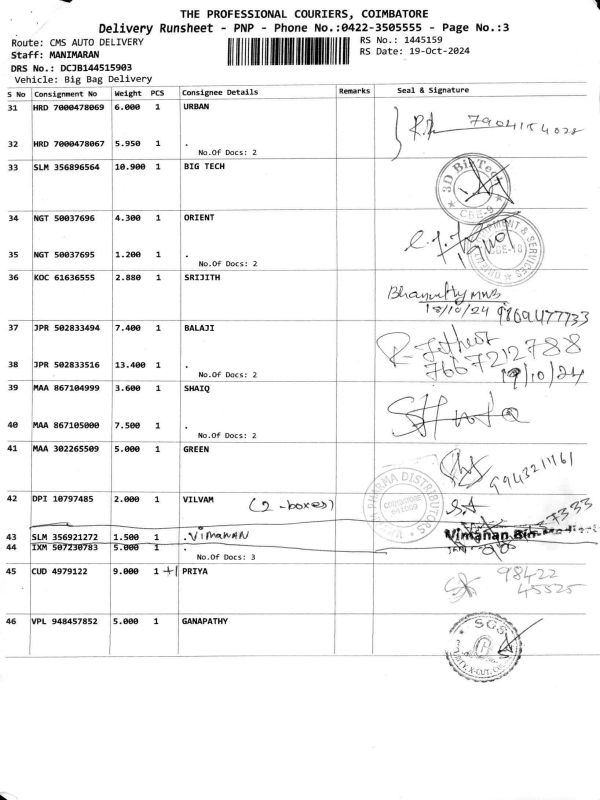 THE PROFESSIONAL COURIERS, COIMBATORE
Delivery Runsheet - PNP - Phone No.:0422-3505555 - Page No.:3
Route: CMS AUTO DELIVERY RS No.: 1445159
Staff: MANIMARAN RS Date: 19-Oct-2024
DRS No.: DCJB144515903
Vehicle: Big Bag Delivery
S No Consignment No Weight PCS Consignee Details Remarks Seal & Signature
31 HRD 7000478069 6.000 1 URBAN
32 HRD 7000478067 5.950 1 .
No.Of Docs: 2
33 SLM 356896564 10.900 1 BIG TECH
34 NGT 50037696 4.300 1 ORIENT
35 NGT 50037695 1.200 1 .
No.Of Docs: 2
36 KOC 61636555 2.880 1 SRIJITH
9869477733
37 JPR 502833494 7.400 1 BALAJI
7667212788
38 JPR 502833516 13.400 1 .
19/10/24
No.Of Docs: 2
39 MAA 867104999 3.600 1 SHAIQ
40 MAA 867105000 7.500 1 .
No.Of Docs: 2
41 MAA 302265509 5.000 1 GREEN
42 DPI 10797485 2.000 1 VILVAM (2-boxes)
43 SLM 356921272 1.500 1 .VIMAHAN Vimahan
44 IXM 507230783 5.000 1 .
No.Of Docs: 3
45 CUD 4979122 9.000 1 +1 PRIYA 98422
45525
46 VPL 948457852 5.000 1 GANAPATHY
SGS